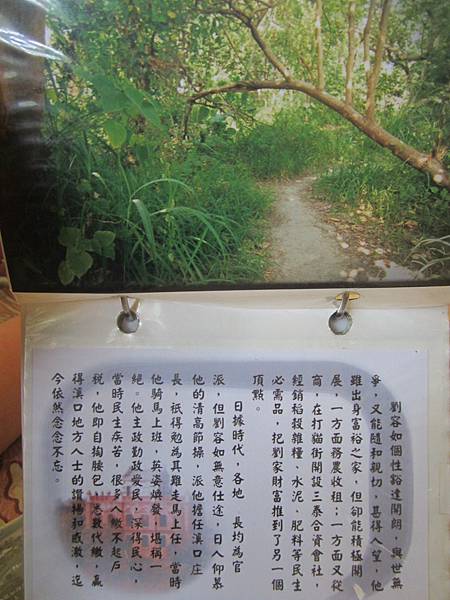 劉容如個性豁達開朗，與世無
爭，又能隨和親切，甚得人望，他
雖出身富裕之家，但卻能積極開
展，一方面務農收租；一方面又從
商，在打貓街開設三泰合資會社，
經銷稻穀雜糧、水泥、肥料等民生
必需品，把劉家財富推到了另一個
頂點。
日據時代，各地 長均為官
派，但劉容如無意仕途，日人仰慕
他的清高節操，派他擔任溪口庄
長，祇得勉為其難走馬上任，當時
他騎馬上班，英姿煥發，堪稱一
絕。他主政勤政愛民，深得民心，
當時民生疾苦，很多人繳不起戶
稅，他即自掏腰包，悉數代繳，贏
得溪口地方人士的讚揚和感激，迄
今依然念念不忘。